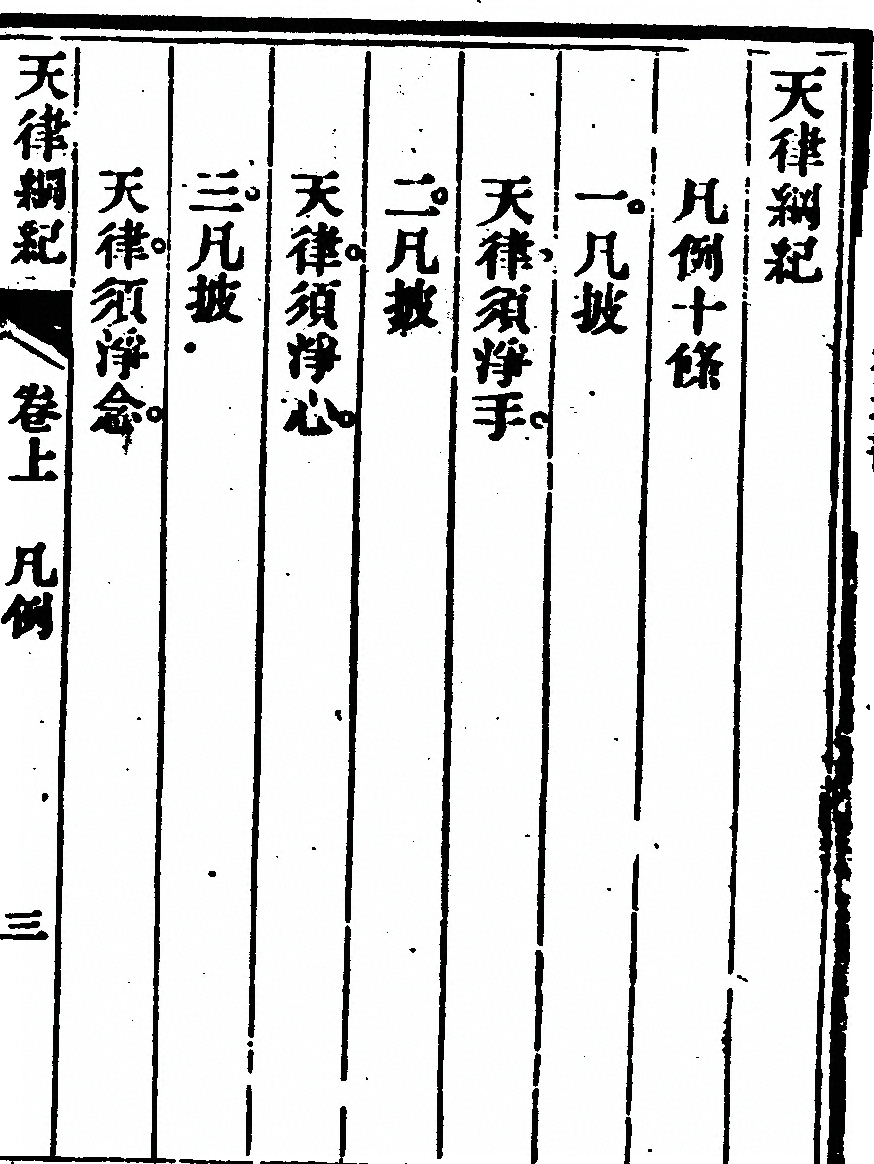 天律綱紀
凡例十條
一。凡披
天律、須淨手。
二。凡披
天律。須淨心。
三。凡披
天律。須淨念。
天律綱紀
卷上 凡例
三